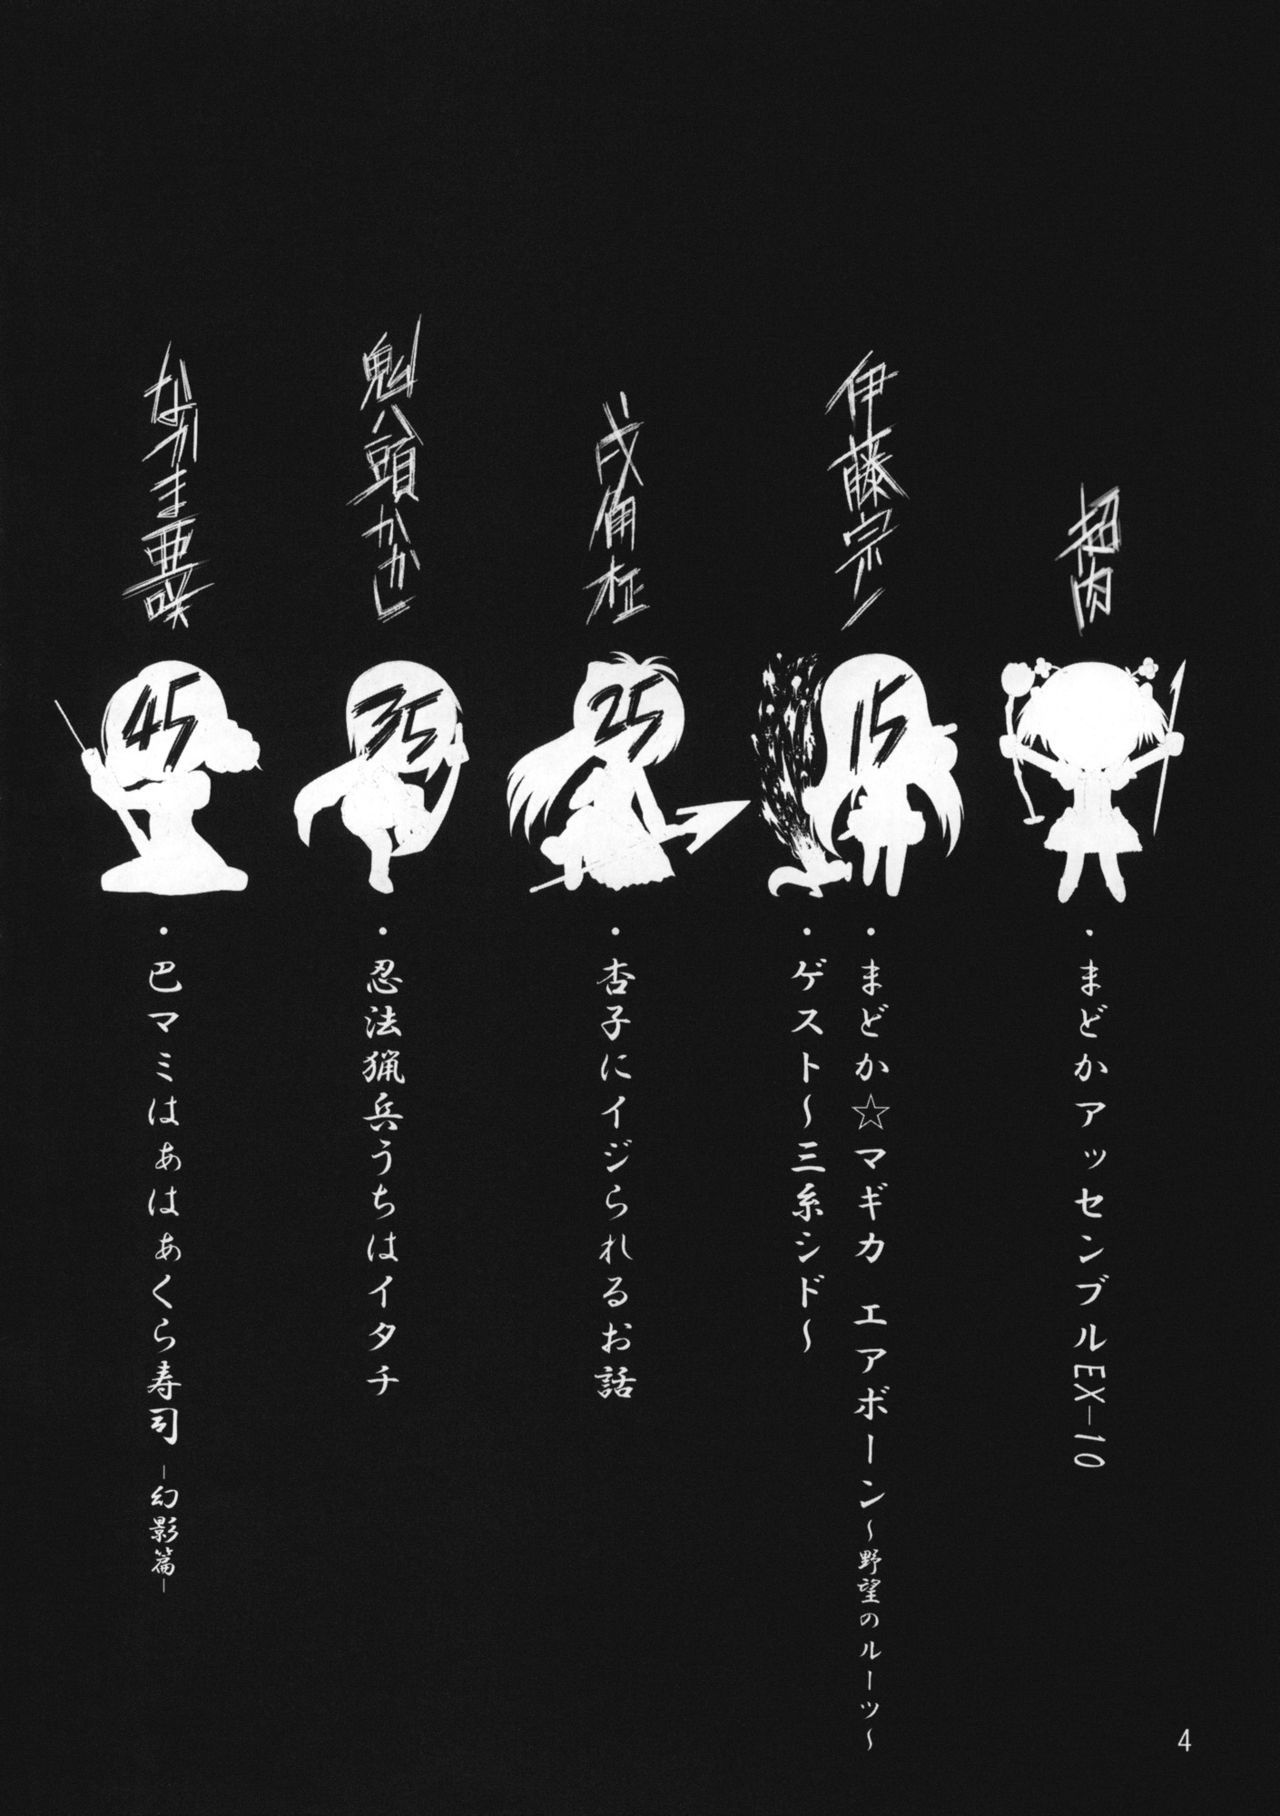 伊藤宗一
なかま亜咲
・まどかアッセンブルEX-10
15
・まどか☆マギカ エアボーン～野望のルーツ～
・ゲスト～三糸シド～
25
・杏子にイジられるお話
35
・忍法猟兵うちはイタチ
45
・巴マミはぁはぁくら寿司 -幻影篇-
4